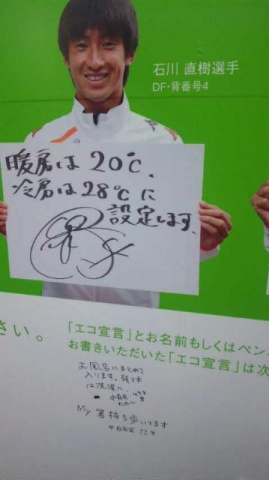 石川 直樹選手
DF・背番号4
暖房は20℃、
冷房は28℃に
設定します。
さい。
「エコ宣言」とお名前もしくはペン
お書きいただいた「エコ宣言」は次
お風呂にまとめて
入ります。
My 箸持ち歩いてます